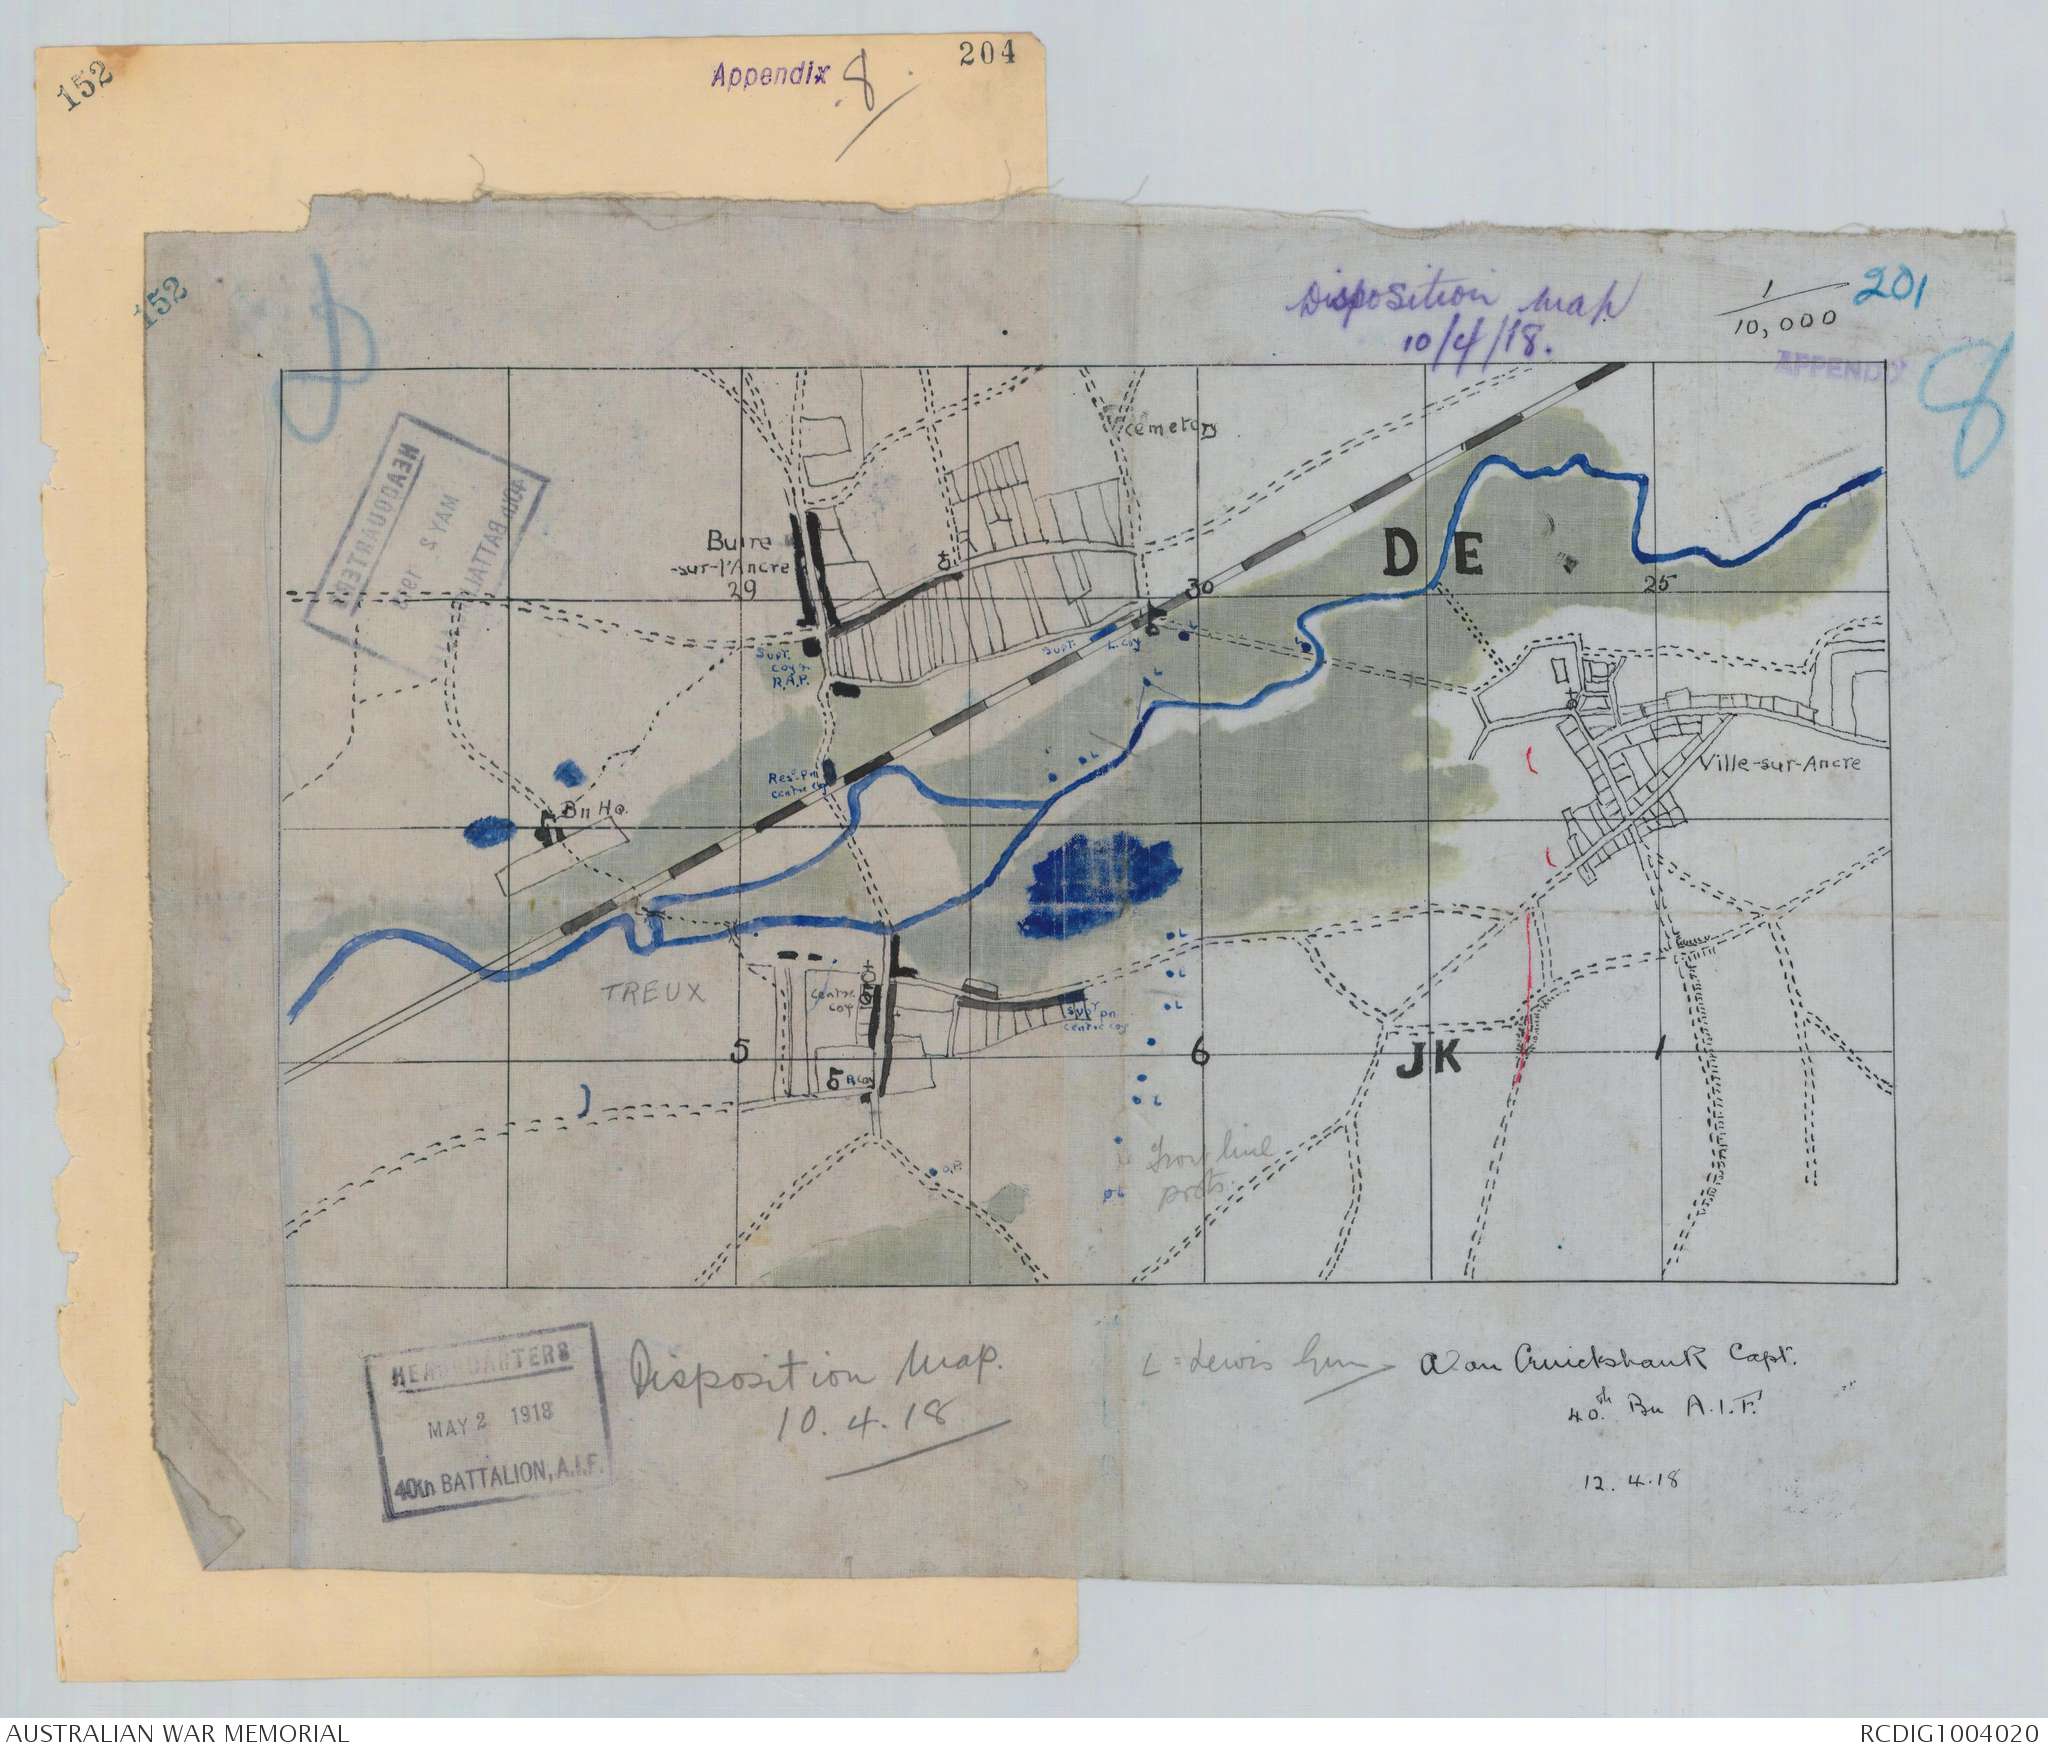 152
Appendix 8
204
152
Disposition Map
10/4/18.
1
10,000
201
APPENDIX
8
8
HEADQUARTERS
MAY 2 1918
40th BATTALION
Cemetery
Buire
-sur-l'Ancre
29
30
D E
25
Supt.
coy &
R.A.P.
Supt.
L. coy
L
L
L
Ville-sur-Ancre
Res. pn
centre coy
L
Bn Hq.
TREUX
centre
coy
L
L
L
Supt pn
centre coy
5
6
J K
1
R. Coy
L
O.P.
L
Front line
posts.
HEADQUARTERS
MAY 2 1918
40th BATTALION, A.I.F.
Disposition Map.
10.4.18
L = Lewis Gun
Alan Cruickshank Capt.
40th Bn A.I.F.
12.4.18
AUSTRALIAN WAR MEMORIAL
RCDIG1004020